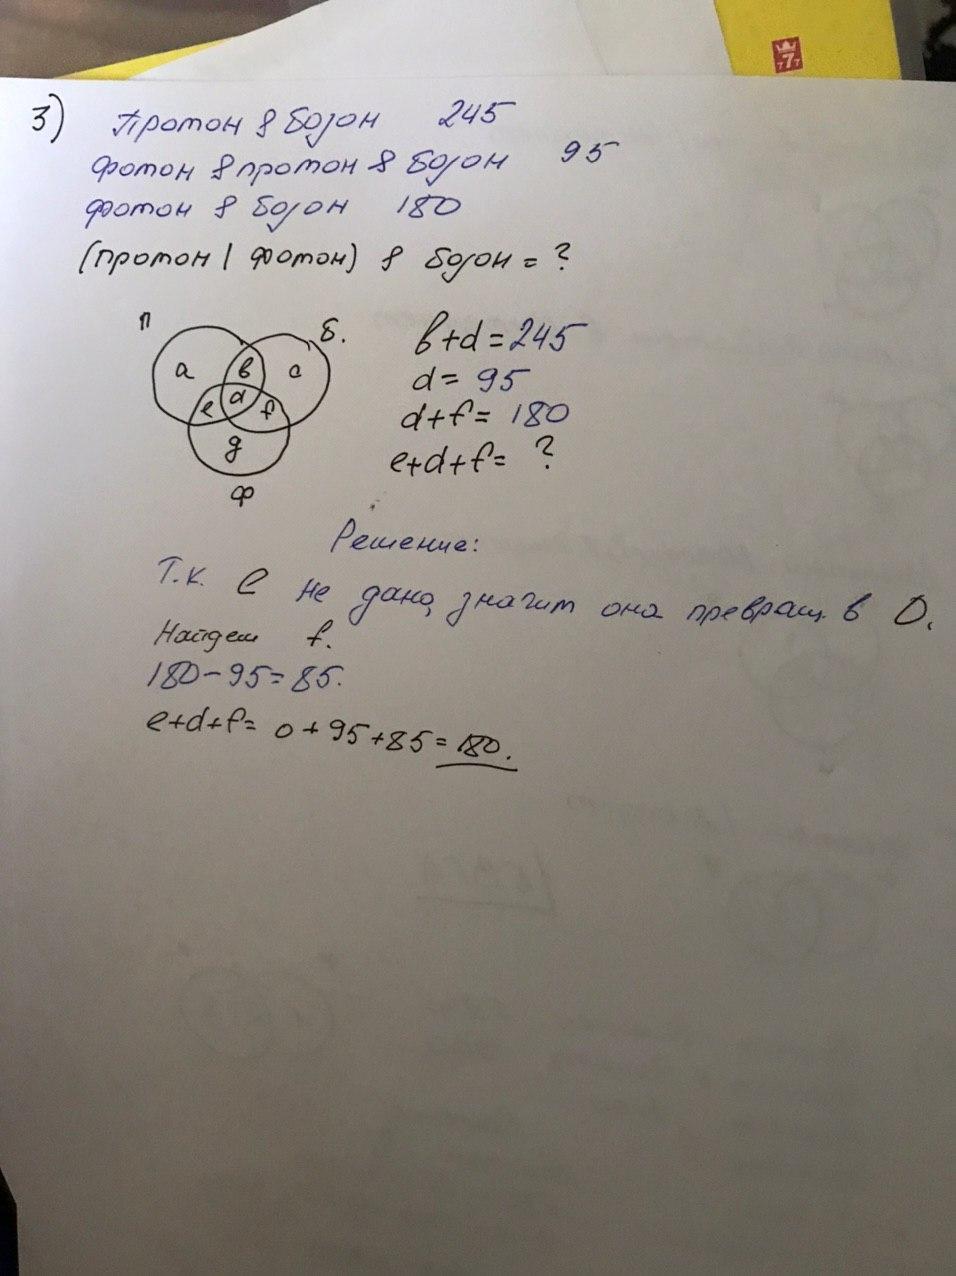 777
3) Протон & бозон 245
фотон & протон & бозон 95
фотон & бозон 180
(протон | фотон) & бозон = ?
п
б.
a
в
c
e
d
f
g
ф
в+d=245
d= 95
d+f= 180
e+d+f= ?
Решение:
Т.к. е не дано, значит она превращ. в 0.
Найдем f.
180-95=85.
e+d+f= 0+95+85=180.